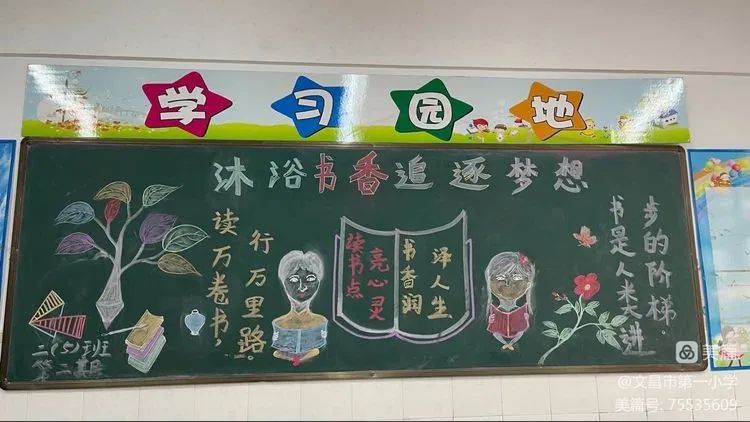 学习园地
沐浴书香追逐梦想
读万卷书，
行万里路。
读书点
亮心灵
书香润
泽人生
书是人类进
步的阶梯。
二(5)班
第二期
美篇
@文昌市第一小学
美篇号: 75535609